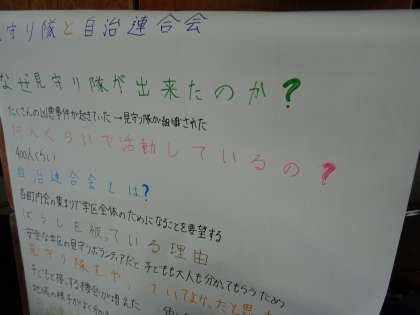 見守り隊と自治連合会
なぜ見守り隊が出来たのか?
たくさんの凶悪事件が起きていた→見守り隊が組織された
何人くらいで活動しているの?
400人くらい
自治連合会とは?
各町内会の集まりで学区全体のためになることを要望する
を被っている理由
安全な学区の見守りボランティアだと子どもも大人も分かってもらうため
見守り隊をやっていてよかったと思
子どもと接する機会が増えた
地域の様子がよく分